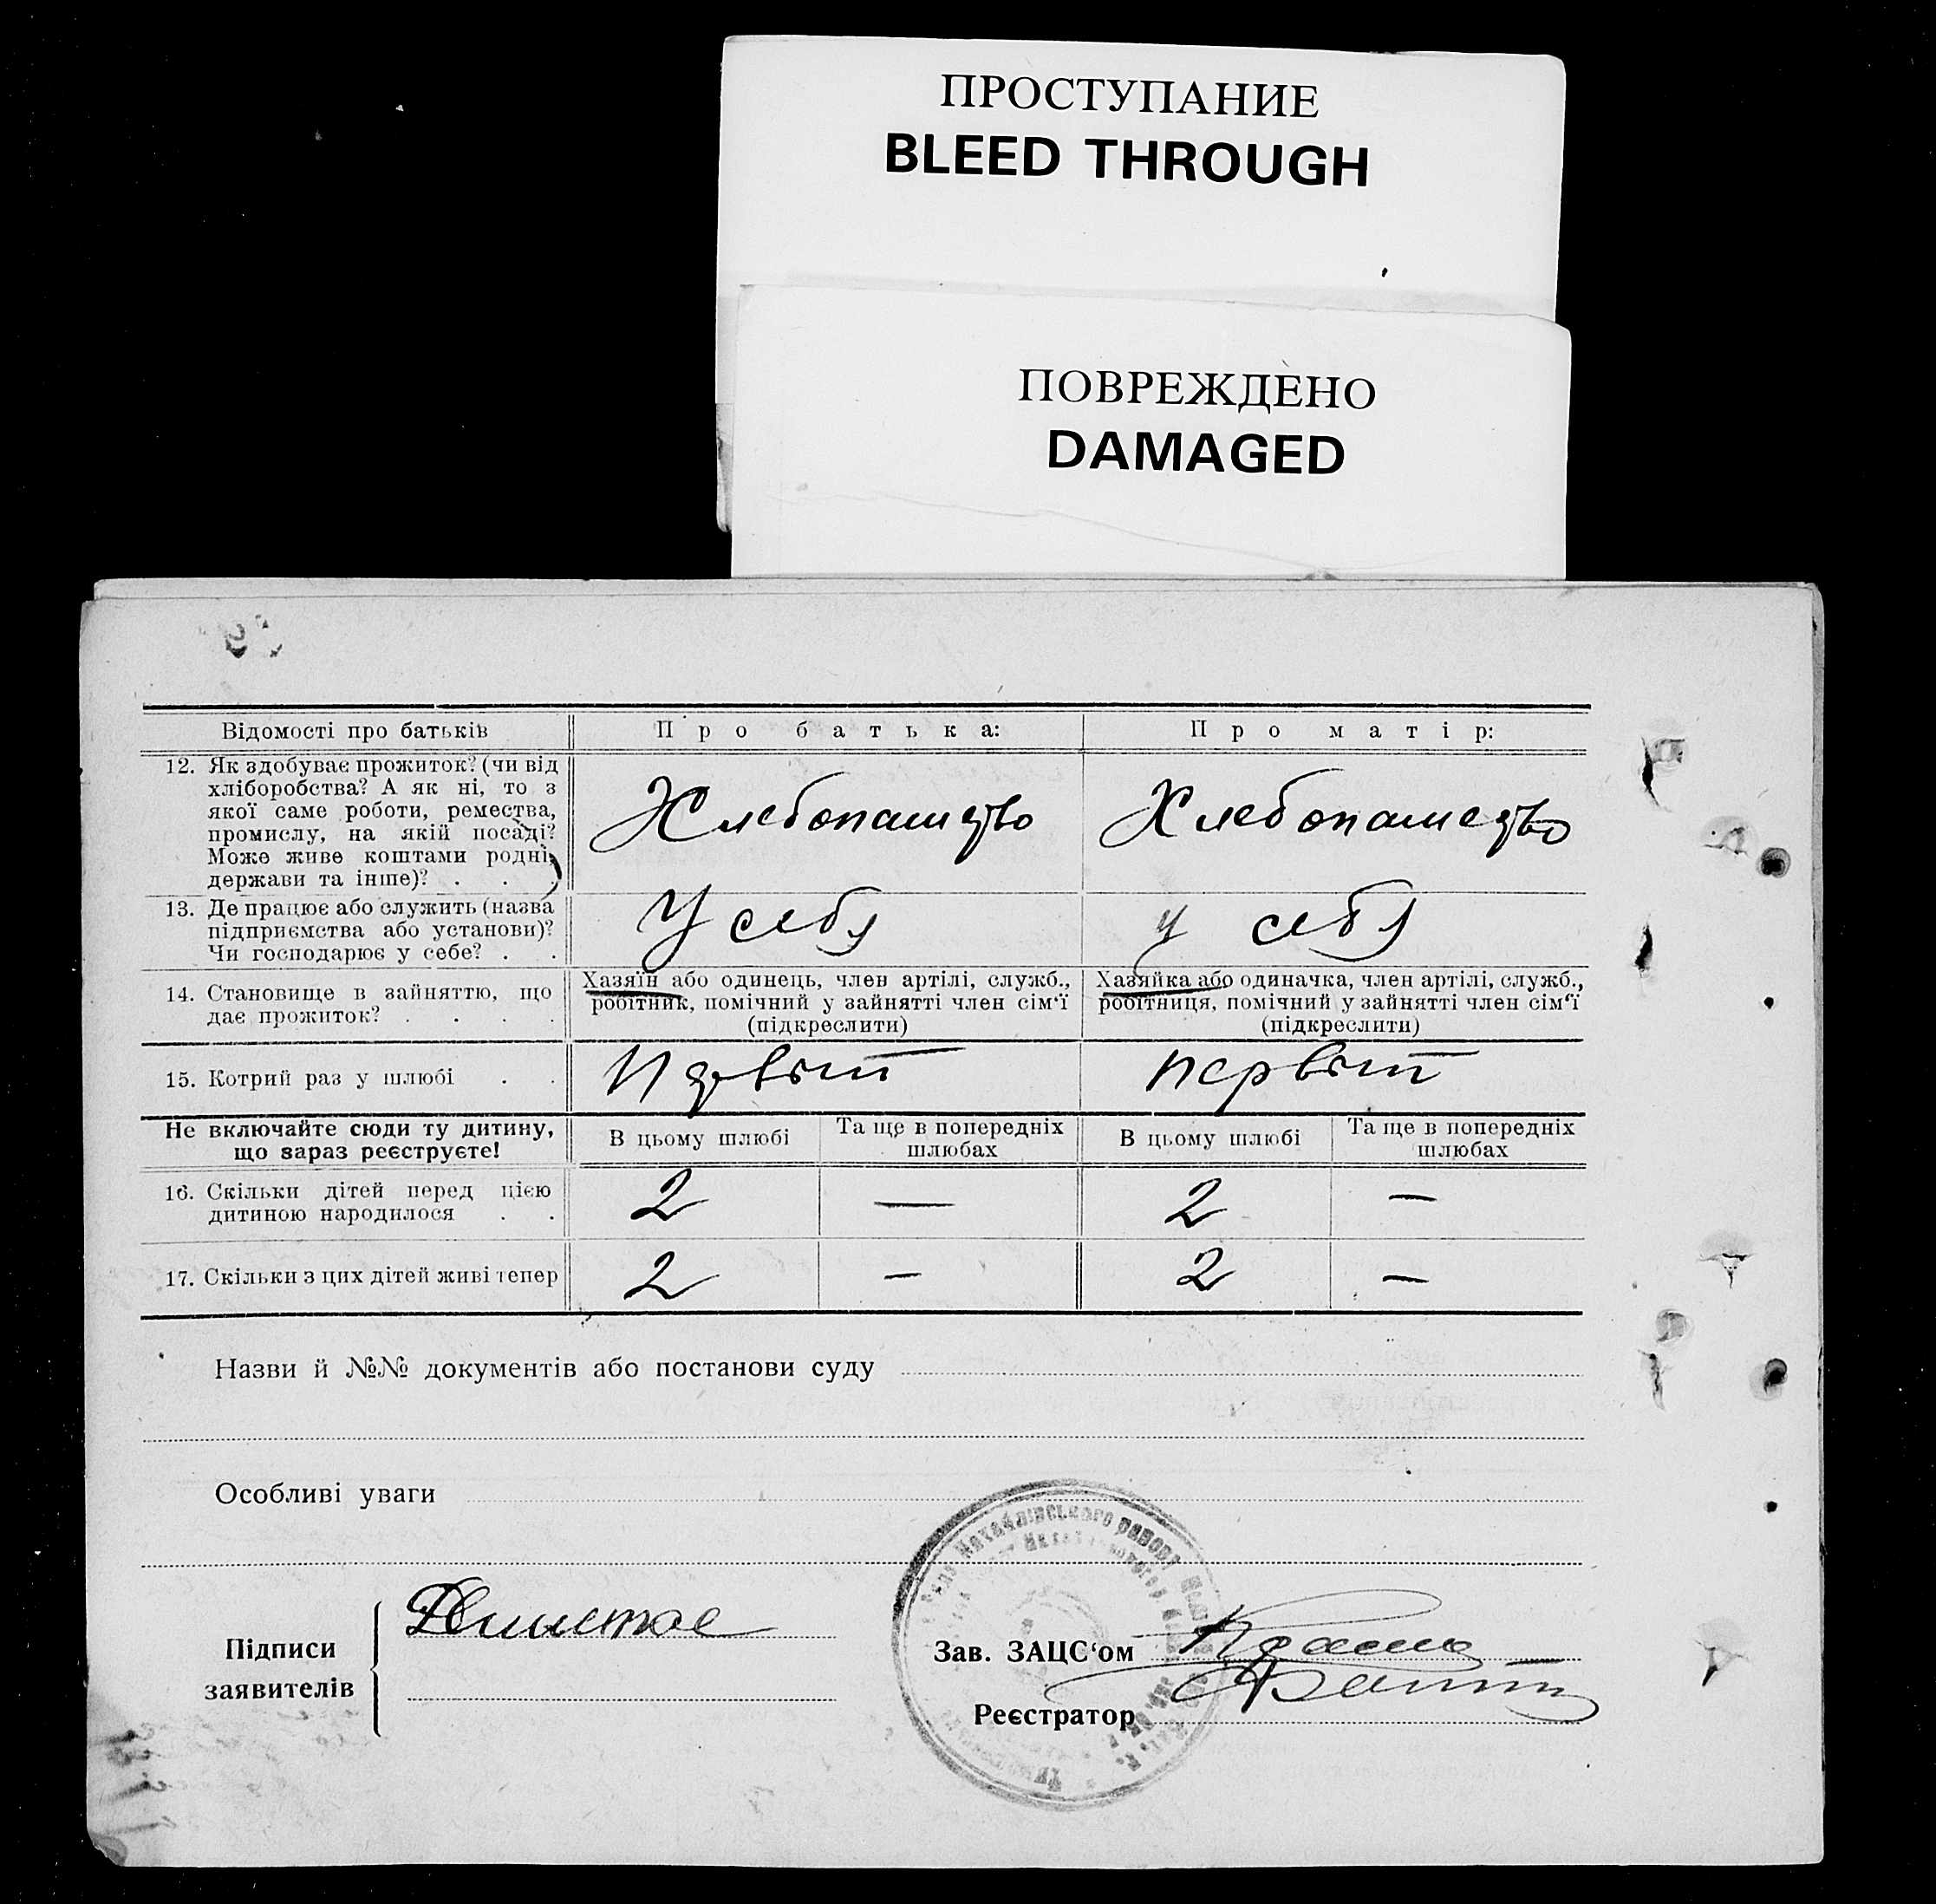 ПРОСТУПАНИЕ
BLEED THROUGH
ПОВРЕЖДЕНО
DAMAGED
Відомості про батьків
Про батька:
Про матір:
12. Як здобуває прожиток? (чи від
хліборобства? А як ні, то з
якої саме роботи, ремества,
промислу, на якій посаді?
Може живе коштами родні,
держави та інше)? . . .
Хлебопашество
Хлебопашество
13. Де працює або служить (назва
підприємства або установи)?
Чи господарює у себе? . .
У себя
у себя
14. Становище в зайняттю, що
дає прожиток? . . . .
Хазяїн або одинець, член артілі, служб.,
робітник, помічний у зайнятті член сім‘ї
(підкреслити)
Хазяйка або одиначка, член артілі, служб.,
робітниця, помічний у зайнятті член сім‘ї
(підкреслити)
15. Котрий раз у шлюбі . .
первый
первый
Не включайте сюди ту дитину,
що зараз реєструєте!
В цьому шлюбі
Та ще в попередніх
шлюбах
В цьому шлюбі
Та ще в попередніх
шлюбах
16. Скільки дітей перед цією
дитиною народилося . .
2
—
2
—
17. Скільки з цих дітей живі тепер
2
—
2
—
Назви й №№ документів або постанови суду
Особливі уваги
Михайлівського района
Підписи
заявителів
Зав. ЗАЦС‘ом
Реєстратор